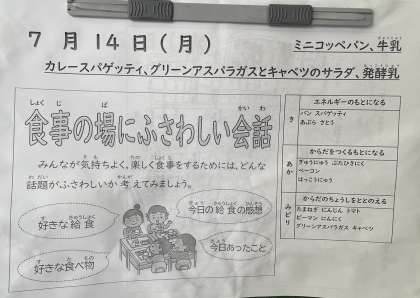 7月14日(月)
ミニコッペパン、牛乳
カレースパゲッティ、グリーンアスパラガスとキャベツのサラダ、発酵乳
食事の場にふさわしい会話
みんなが気持ちよく、楽しく食事をするためには、どんな
話題がふさわしいか考えてみましょう。
好きな給食
今日の給食の感想
好きな食べ物
今日あったこと
エネルギーのもとになる
き
パン スパゲッティ
あぶら さとう
からだをつくるもとになる
あか
ぎゅうにゅう ぶたひきにく
ベーコン
はっこうにゅう
からだのちょうしをととのえる
みどり
たまねぎ にんじん トマト
ピーマン にんにく
グリーンアスパラガス キャベツ